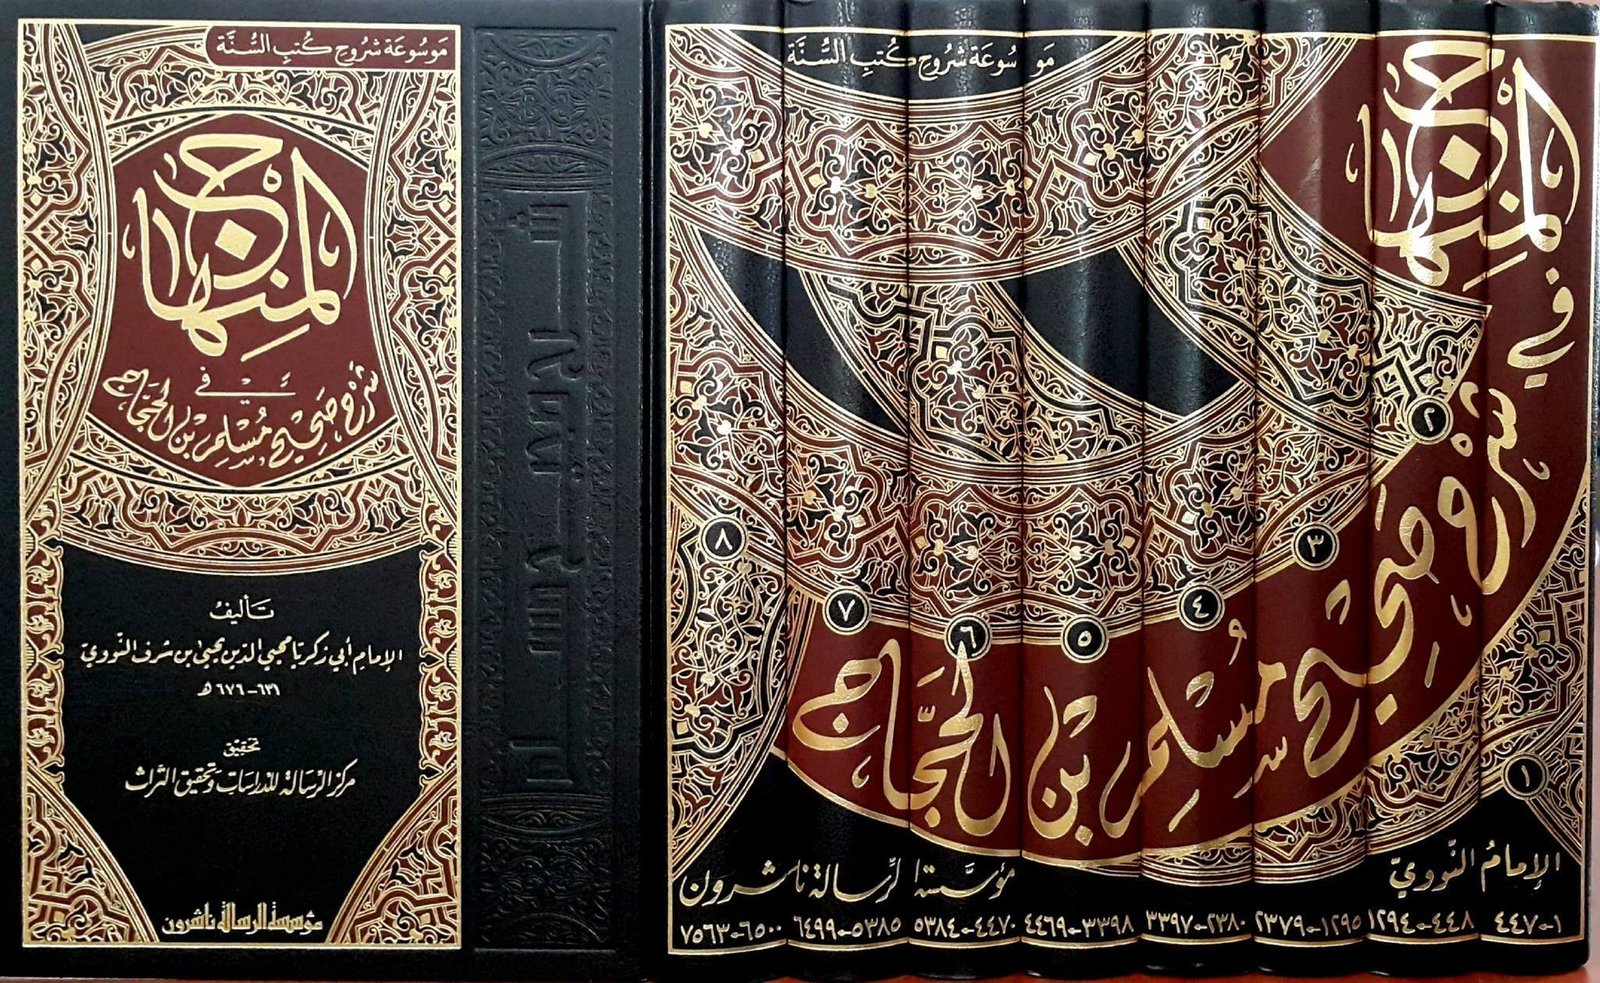 موسوعة شروح كتب السنة
المنهاج
في
شرح صحيح مسلم بن الحجاج
تأليف
الإمام أبي زكريا محيي الدين يحيى ابن شرف النووي
٦٣١-٦٧٦ هـ
تحقيق
مركز الرسالة للدراسات وتحقيق التراث
مؤسسة الرسالة ناشرون
موسوعة شروح كتب السنة
المنهاج
في
شرح صحيح مسلم بن الحجاج
١ ٢ ٣ ٤ ٥ ٦ ٧ ٨
الإمام النووي
مؤسسة الرسالة ناشرون
١-٤٤٧
٤٤٨-١٢٩٤
١٢٩٥-٢٣٧٩
٢٣٨٠-٣٣٩٧
٣٣٩٨-٤٤٦٩
٤٤٧٠-٥٣٨٤
٥٣٨٥-٦٤٩٩
٦٥٠٠-٧٥٦٣